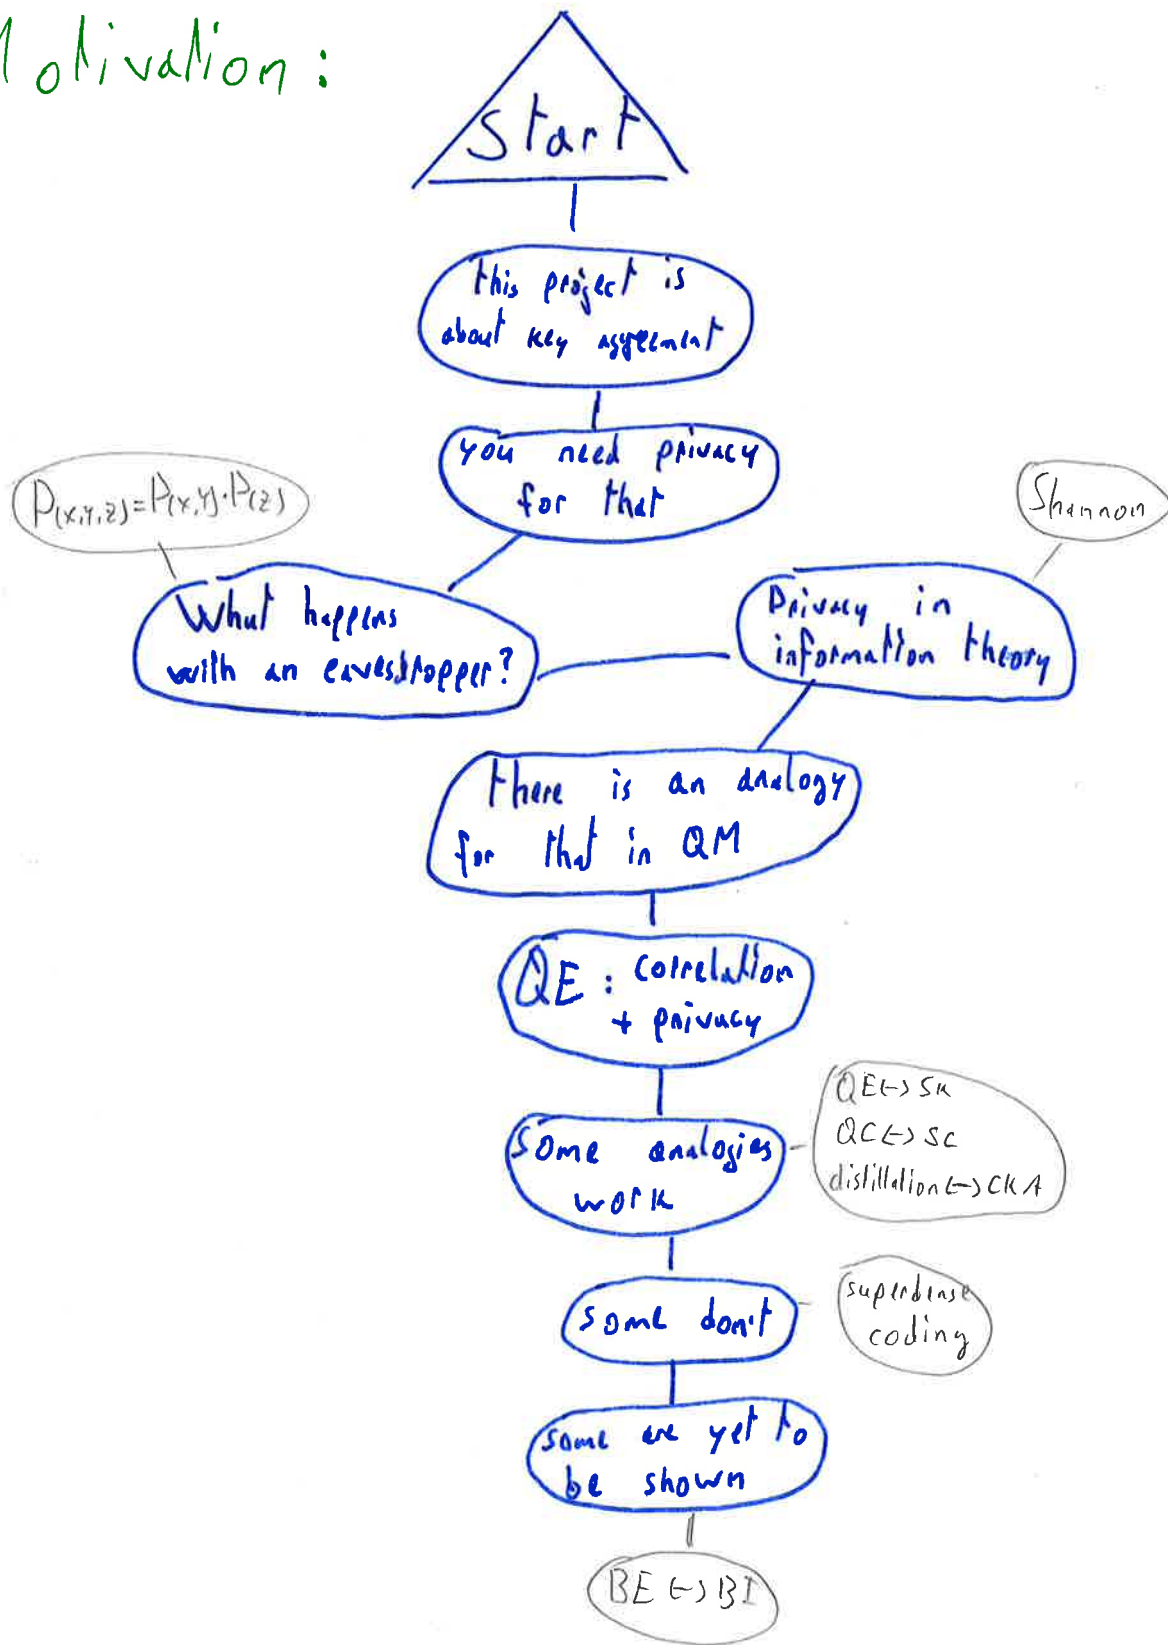 Motivation:
Start
this project is
about key aggreement
you need privacy
for that
P(x,y,z)=P(x,y)·P(z)
Shannon
What happens
with an eavesdropper?
Privacy in
information theory
there is an analogy
for that in QM
QE: correlation
+ privacy
QE↔SK
QC↔SC
distillation↔CKA
Some analogies
work
superdense
coding
some don't
some are yet to
be shown
BE↔BI